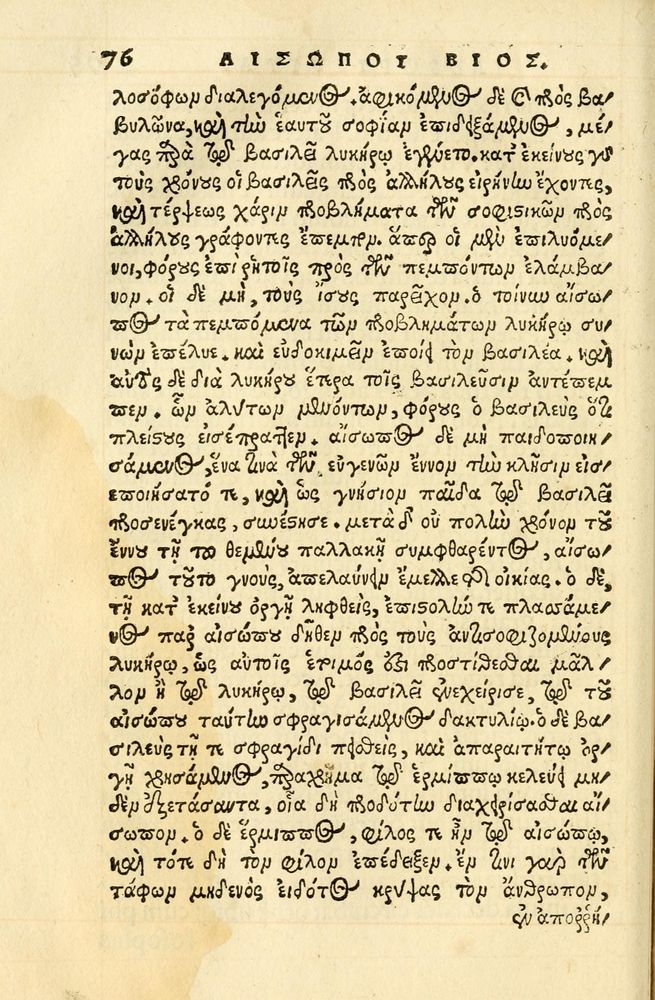 76 ΑΙΣΩΠΟΥ ΒΙΟΣ.
λοσόφων διαλεγόμενος. ἀφικόμενος δὲ ϗ πρὸς βα/
βυλῶνα, καὶ τὴν ἑαυτοῦ σοφίαν ἐπιδειξάμενος, μέ/
γας παρὰ τῷ βασιλεῖ λυκήρῳ ἐγένετο. κατ' ἐκείνους γὰρ
τοὺς χρόνους οἱ βασιλεῖς πρὸς ἀλλήλους εἰρήνην ἔχοντες,
καὶ τέρψεως χάριν προβλήματα τῶν σοφιστικῶν πρὸς
ἀλλήλους γράφοντες ἔπεμπον. ἅπερ οἱ μὲν ἐπιλυόμε/
νοι, φόρους ἐπὶ ῥητοῖς πρὸς τῶν πεμπόντων ἐλάμβα/
νον. οἱ δὲ μὴ, τοὺς ἴσους παρεῖχον. ὁ τοίνυν αἴσω/
πος τὰ πεμπόμενα τῶν προβλημάτων λυκήρῳ συ/
νῶν ἐπέλυε. καὶ εὐδοκιμεῖν ἐποίει τὸν βασιλέα. καὶ
αὐτὸς δὲ διὰ λυκήρου ἕτερα τοῖς βασιλεῦσιν ἀντέπεμ
πεν. ὧν ἀλύτων μενόντων, φόρους ὁ βασιλεὺς ὅτι
πλείστους εἰσέπραττεν. αἴσωπος δὲ μὴ παιδοποιη/
σάμενος, ἕνα τινὰ τῶν εὐγενῶν ἔννον τὴν κλῆσιν εἰσ/
εποιήσατό τε, καὶ ὡς γνήσιον παῖδα τῷ βασιλεῖ
προσενέγκας, συνέστησε. μετὰ δ' οὐ πολὺν χρόνον τοῦ
ἔννου τῇ τοῦ θεμένου παλλακῇ συμφθαρέντος, αἴσω/
πος τοῦτο γνοὺς, ἀπελαύνειν ἔμελλε τῆς οἰκίας. ὁ δὲ,
τῇ κατ' ἐκείνου ὀργῇ ληφθεὶς, ἐπιστολήν τε πλασάμε/
νος παρ' αἰσώπου δῆθεν πρὸς τοὺς ἀντισοφιζομένους
λυκήρῳ, ὡς αὐτοῖς ἕτοιμός ἐστι προστίθεσθαι μᾶλ/
λον ἢ τῷ λυκήρῳ, τῷ βασιλεῖ ἐνεχείρισε, τῷ τοῦ
αἰσώπου ταύτην σφραγισάμενος δακτυλίῳ. ὁ δὲ βα/
σιλεὺς τῇ τε σφραγίδι πεισθεὶς, καὶ ἀπαραιτήτῳ ὀρ/
γῇ χρησάμενος, παραχρῆμα τῷ ἑρμίππῳ κελεύει μη/
δὲν ἐξετάσαντα, οἷα δὴ προδότην διαχειρίσασθαι αἴ/
σωπον. ὁ δὲ ἕρμιππος, φίλος τε ἦν τῷ αἰσώπῳ,
καὶ τότε δὴ τὸν φίλον ἐπέδειξεν. ἔν τινι γὰρ τῶν
τάφων μηδενὸς εἰδότος κρύψας τὸν ἄνθρωπον,
ἐν ἀπορρή/